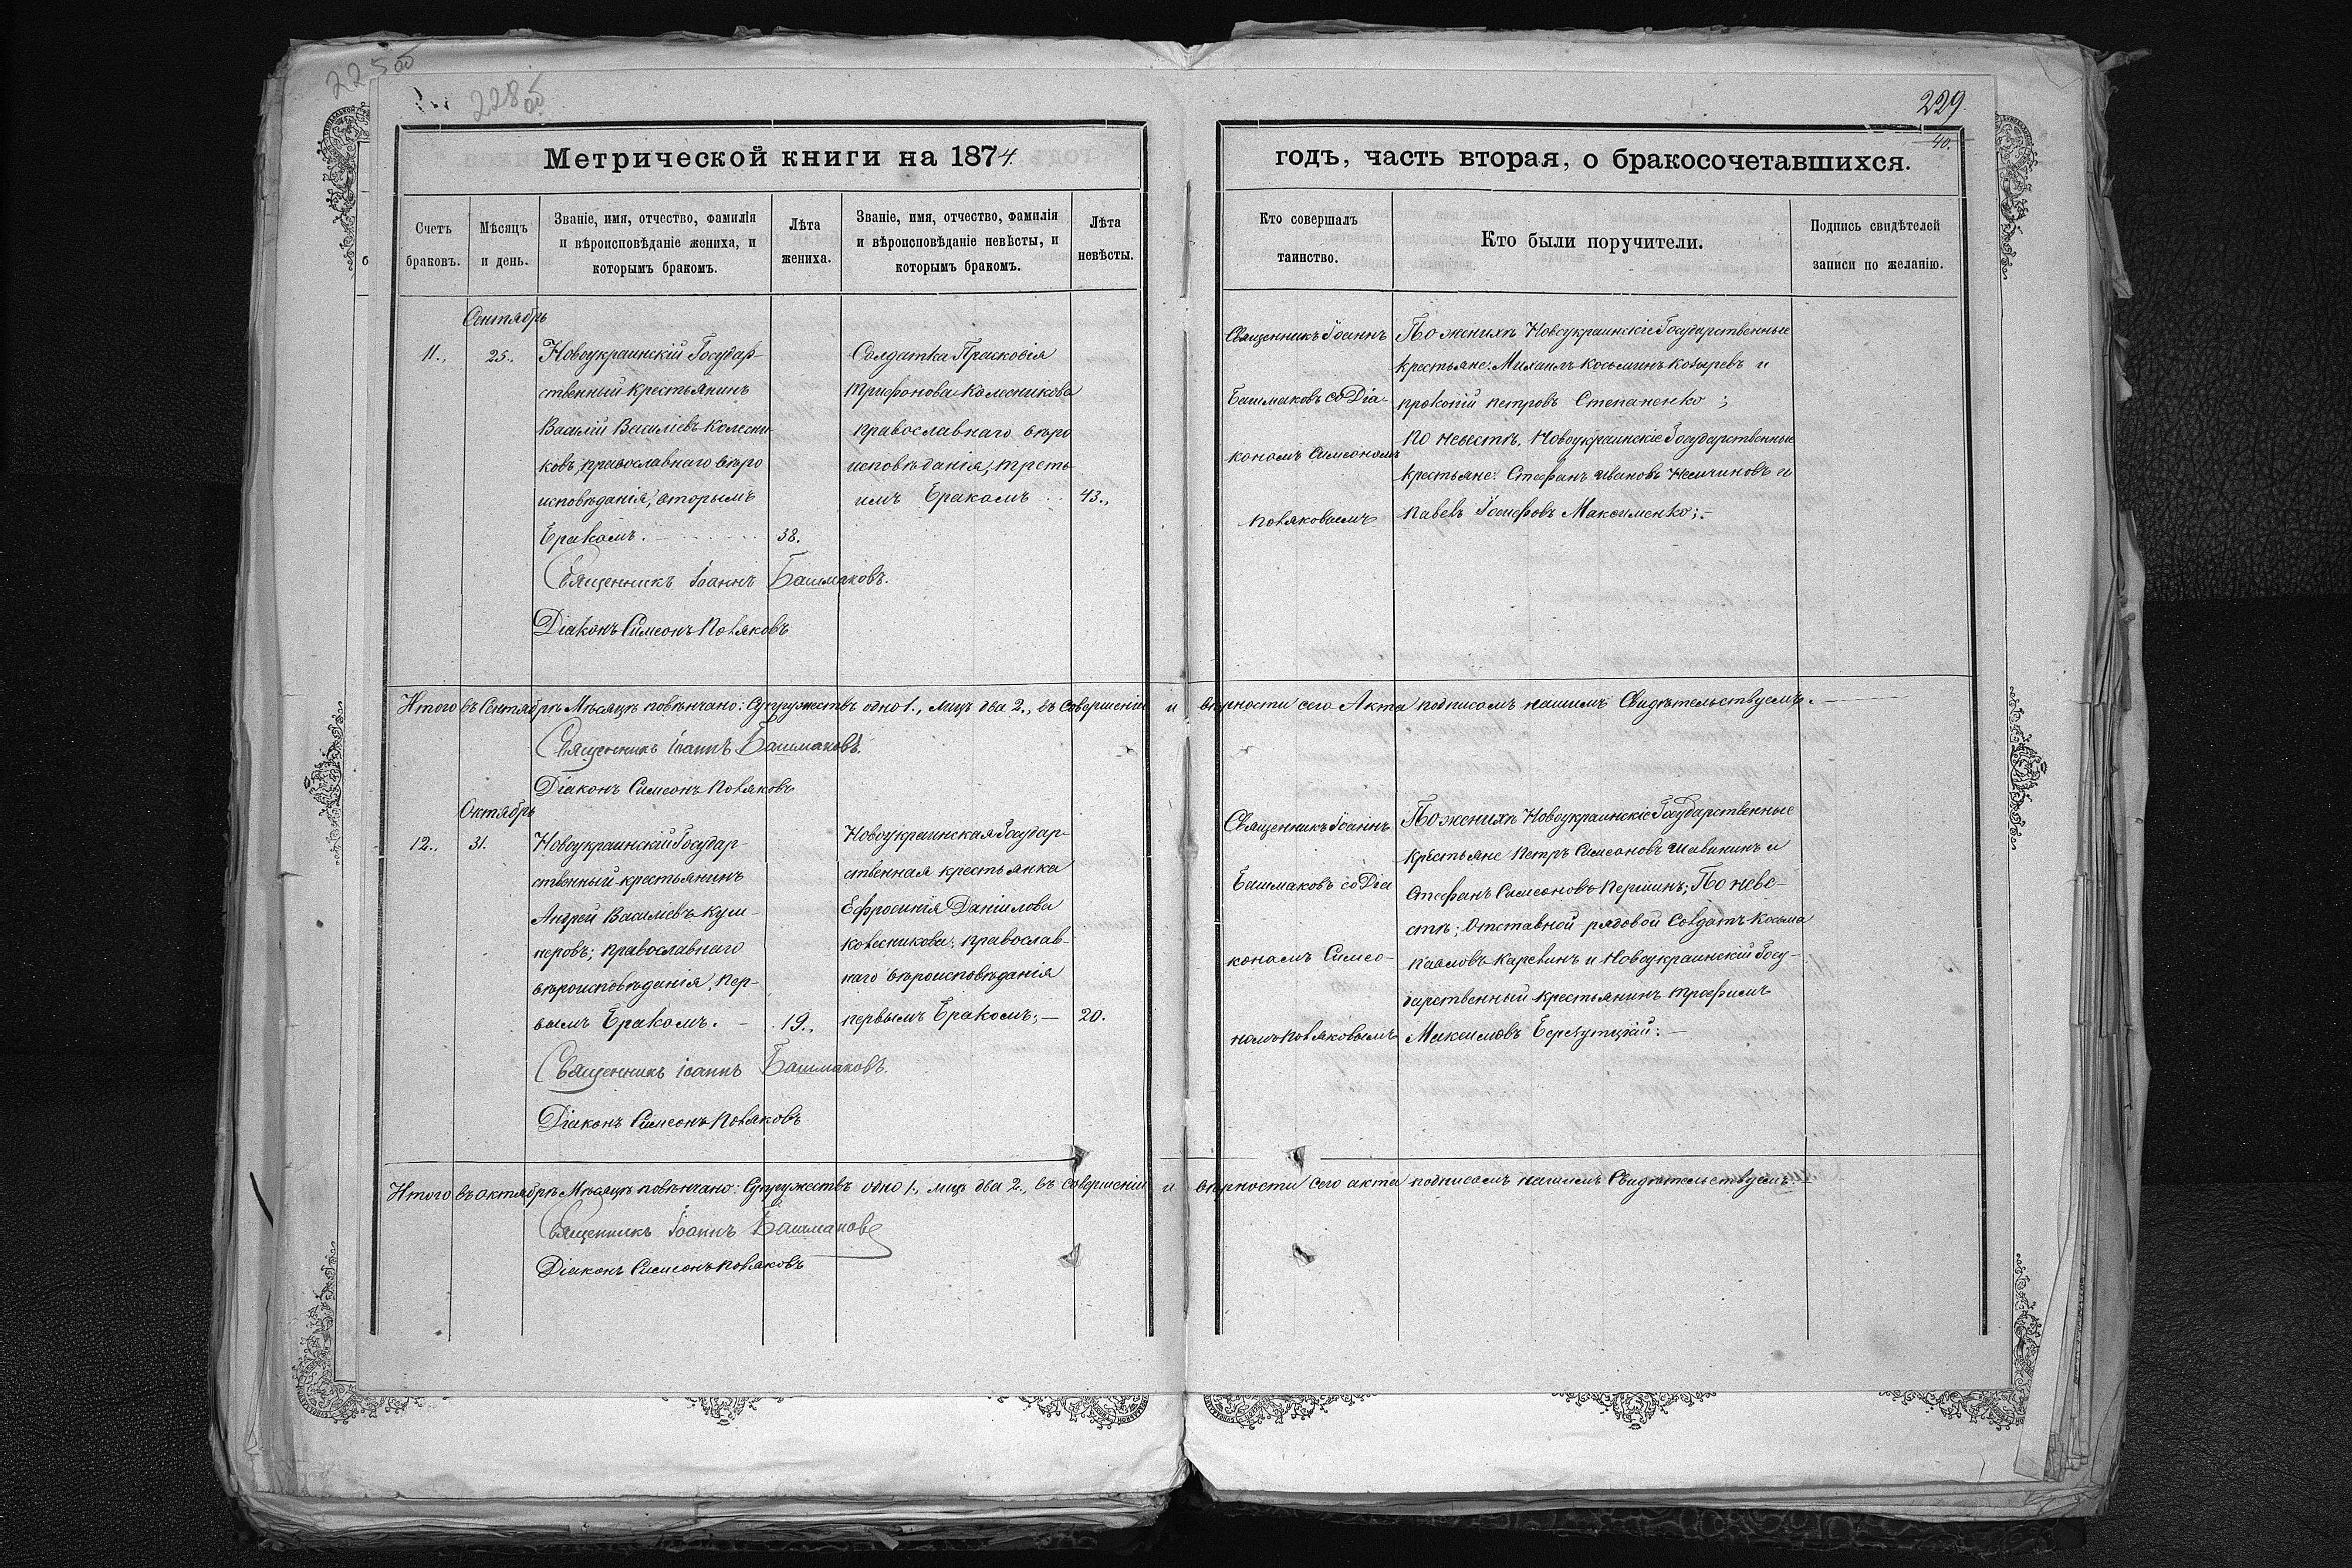 225 об
228 об
229
40.
Метрической книги на 1874.
годъ, часть вторая, о бракосочетавшихся.
Счетъ браковъ.
Мѣсяцъ и день.
Званіе, имя, отчество, фамилія
и вѣроисповѣданіе жениха, и
которымъ бракомъ.
Лѣта жениха.
Званіе, имя, отчество, фамилія
и вѣроисповѣданіе невѣсты, и
которымъ бракомъ.
Лѣта невѣсты.
Кто совершалъ
таинство.
Кто были поручители.
Подпись свидѣтелей
записи по желанію.
Сентябрь
11.,
25.
Новоукраинскій Государ-
ственный крестьянинъ
Василій Василіевъ Колесни
ковъ, православнаго вѣро
исповѣданія, вторымъ
бракомъ.
38.
Солдатка Прасковія
Трифонова Колесникова
православнаго вѣро
исповѣданія, треть
имъ бракомъ
43.,
Священникъ Іоаннъ
Башмаковъ со Діа-
кономъ Симеономъ
Поляковымъ
По женихѣ Новоукраинскіе Государственные
крестьяне: Михаилъ Косьминъ Козыревъ и
Прокопій Петровъ Степаненко;
По невестѣ, Новоукраинскіе Государственные
крестьяне: Стефанъ Ивановъ Немчиновъ и
Павелъ Іосифовъ Максименко;
Священникъ Іоаннъ Башмаковъ.
Діаконъ Симеонъ Поляковъ
Итого въ Сентябрѣ Мѣсяцѣ повѣнчано: Супружествъ одно 1., лицъ два 2., въ совершеніи и вѣрности сего Акта подписомъ нашимъ Свидѣтельствуемъ.
Священникъ Іоаннъ Башмаковъ.
Діаконъ Симеонъ Поляковъ
Октябрь
12.,
31.
Новоукраинскій Государ-
ственный крестьянинъ
Андрей Василіевъ Куш-
неровъ; православнаго
вѣроисповѣданія, пер-
вымъ бракомъ.
19.,
Новоукраинская Государ-
ственная крестьянка
Ефросинія Даніилова
Колесникова; православ-
наго вѣроисповѣданія
первымъ бракомъ;
20.
Священникъ Іоаннъ
Башмаковъ со Діа
кономъ Симео-
номъ Поляковымъ
По женихѣ Новоукраинскіе Государственные
крестьяне Петръ Симеоновъ Шавинъ и
Стефанъ Симеоновъ Першинъ; По неве-
стѣ; Отставной рядовой Солдатъ Косьма
Павловъ Карелинъ и Новоукраинскій Госу-
дарственный крестьянинъ Трофимъ
Максимовъ Березутцкій:
Священникъ Іоаннъ Башмаковъ.
Діаконъ Симеонъ Поляковъ
Итого въ октябрѣ Мѣсяцѣ повѣнчано: Супружествъ одно 1., лицъ два 2., въ совершеніи и вѣрности сего акта подписомъ нашимъ Свидѣтельствуемъ:
Священникъ Іоаннъ Башмаковъ
Діаконъ Симеонъ Поляковъ